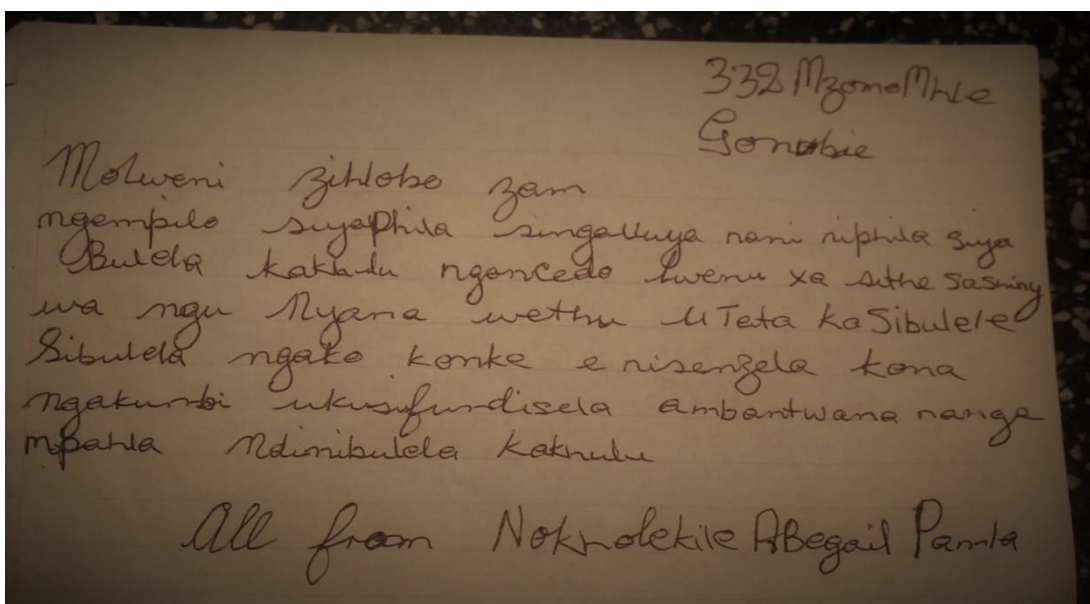 332 MzomoMhle
Gonubie
Molweni zihlobo zam
ngempilo siyaphila singalluya nani niphila siya
Bulela kakhulu ngoncedo lwenu xa sithe sashiny
wa ngu Nyana wethu uTata kaSibulele
Sibulela ngako konke e nisenzela kona
ngakumbi ukusifundisela ambantwana nanga
mpahla Ndinibulela kakhulu
All from Nokholekile ABegail Pamla